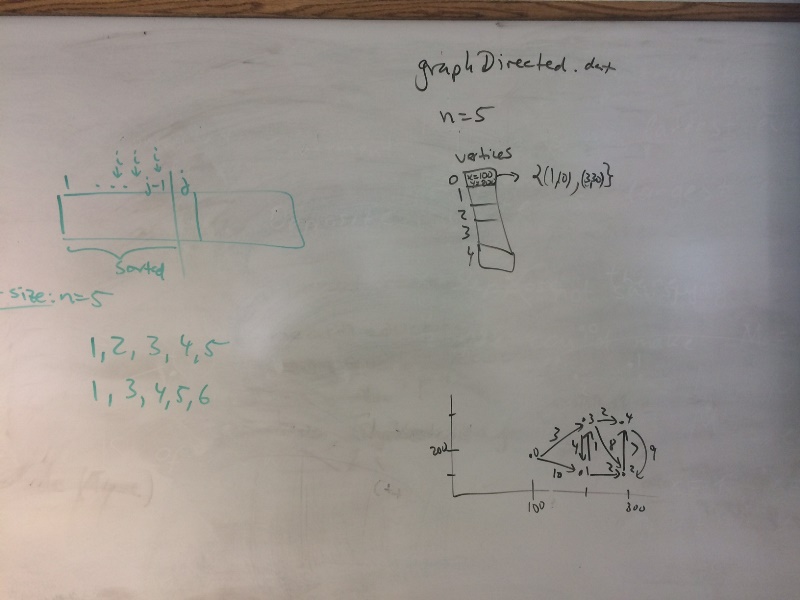 graphDirected.dart
n=5
vertices
0 x=100 → {(1,10), (3,30)}
1
2
3
4
i i i
1 ... j-1 j
sorted
size: n=5
1, 2, 3, 4, 5
1, 3, 4, 5, 6
3 2 4
3 4 1 8 7 9
200 0
10 1 2 2
100 300